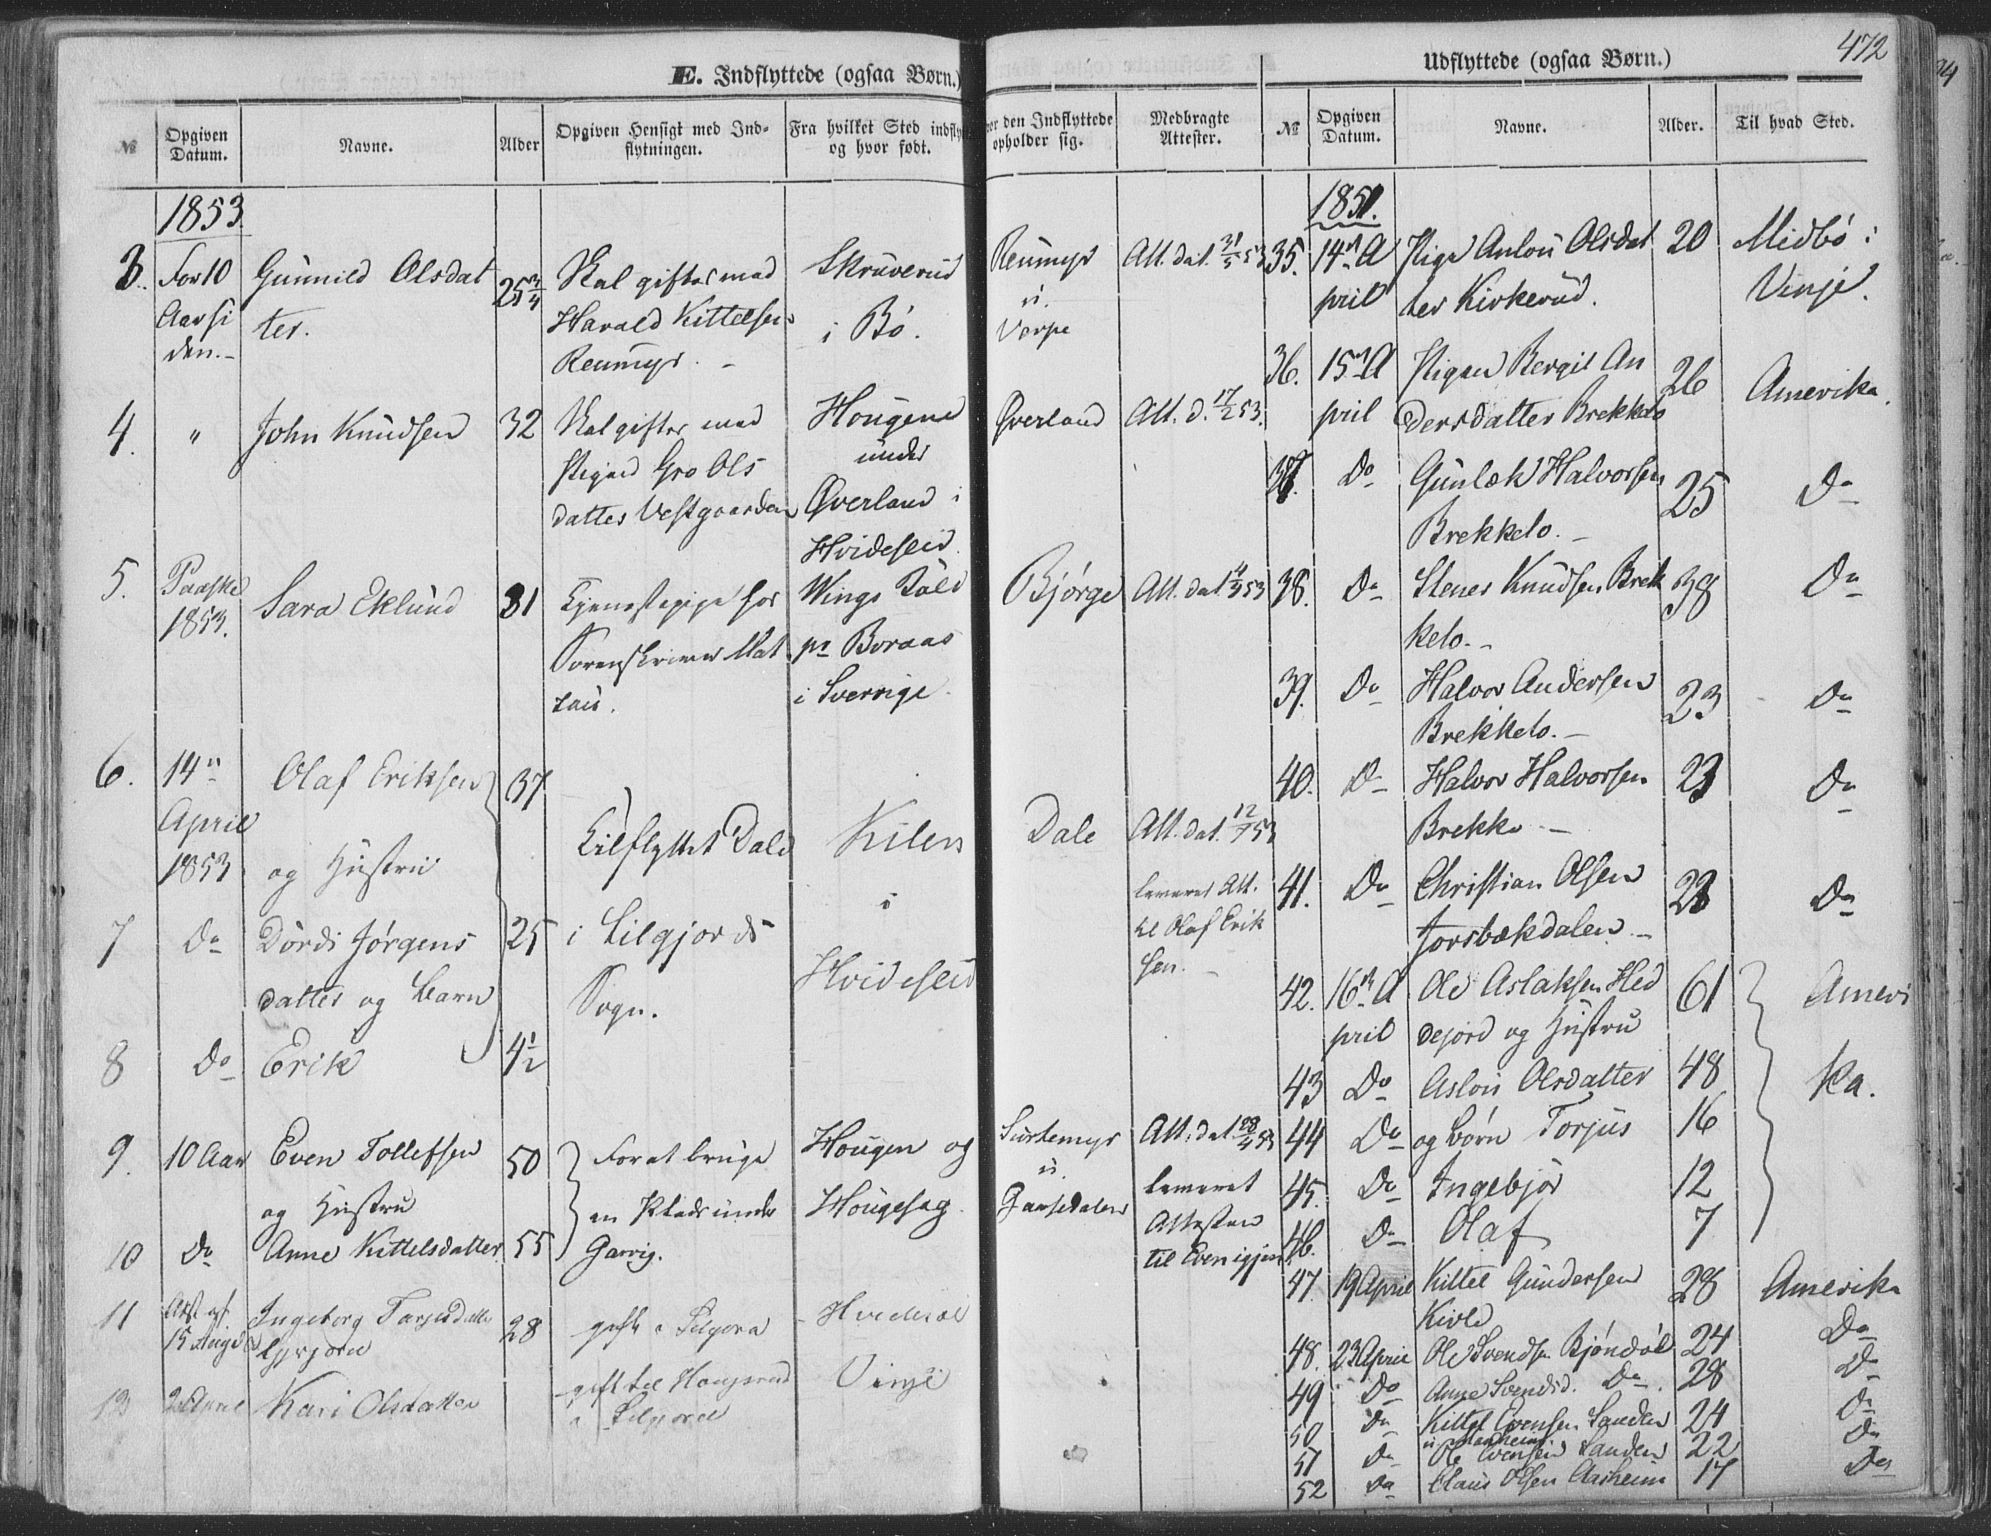 472
E. Indflyttede (ogsaa Børn.)
№
Opgiven Datum.
Navne.
Alder
Opgiven Hensigt med Ind-
flytningen.
Fra hvilket Sted indfly
og hvor født.
vor den Indflyttede
opholder sig.
Medbragte
Attester.
1853.
3. For 10 Gunnild Olsdat 25 3/4 Skal giftes med Skruverud Reumyr Att. dat. 21/5 53
Aar si ter. Harald Kittelsen i Bø. u.
den. Reumyr. Verpe
4. " John Knudsen 32 Skal giftes med Hougene Øverland Att. d. 17/2 53.
Pigen Gro Ols under
datter Vestgaarden Øverland i
Hvideseid.
5. Paaske Sara Eklund 31 Tjenestepige hos Wings Bjørge Att. dat.
1853. Sorenskriver pr Boraas
i Sverrige.
6. 14de Olaf Eriksen 37
April Tilflyttet Dale Kilen Dale Att. dat. 53
1853 og Hustru leveret Att.
7 Do Dördi Jörgens 25 i Silgjords i til Olaf Erik
datter og barn Sogn. Hvideseid sen.
8 Do Erik 4 1/2
9. 10 Aar Even Tollefsen 50 For at bruge Hougen og Surtemyr Att. dat. 53
og Hustru en Plads under Hougesag. u. leveret
10 Do Anne Kittelsdatter 55 Garvig. Attesten
til Even igjen
11 Att. af Ingeborg Tarjesdatter 28 gift i Silgjord Hvideseid
15 Aug
13 Kari Olsdatter gift til Vinje
i Silgjord
Udflyttede (ogsaa Børn.)
№
Opgiven
Datum.
Navne.
Alder.
Til hvad Sted.
1851.
35. 14de A Pige Anlou Olsdat 20 Midbö i
pril ter Kirkerud. Vinje.
36. 15de A Pigen Bergit An 26 Amerika.
pril dersdatter Brekkelo
37. Do Gunlek Halvorsen 25 Do
Brekkelo.
38. Do Stener Knudsen Brek 38 Do
kelo.
39. Do Halvor Andersen 23 Do
Brekkelo.
40. Do Halvor Halvorsen 23 Do
Brekke
41. Do Christian Olsen 23 Do
Jorsbækdalen
42. 16de A Ole Aslaksen Hed 61 Ameri
pril dejord og Hustru
43 Do Aslou Olsdatter 48 ka.
44 Do og børn Torjus 16
45. Do Ingebjör 12
46. Do Olaf 7
47. 19 April Kittel Gundersen 28 Amerika
Kivle
48. 23 April Ole Svendsen Bjöndöl 24 Do
49 Do Anne Svendsd. Do. 28 Do
50 Do Kittel Evensen Sanden 24 Do
51 Do Ole Evensen Sanden 22 Do
52 Do Claus Olsen Aasheim 17 Do